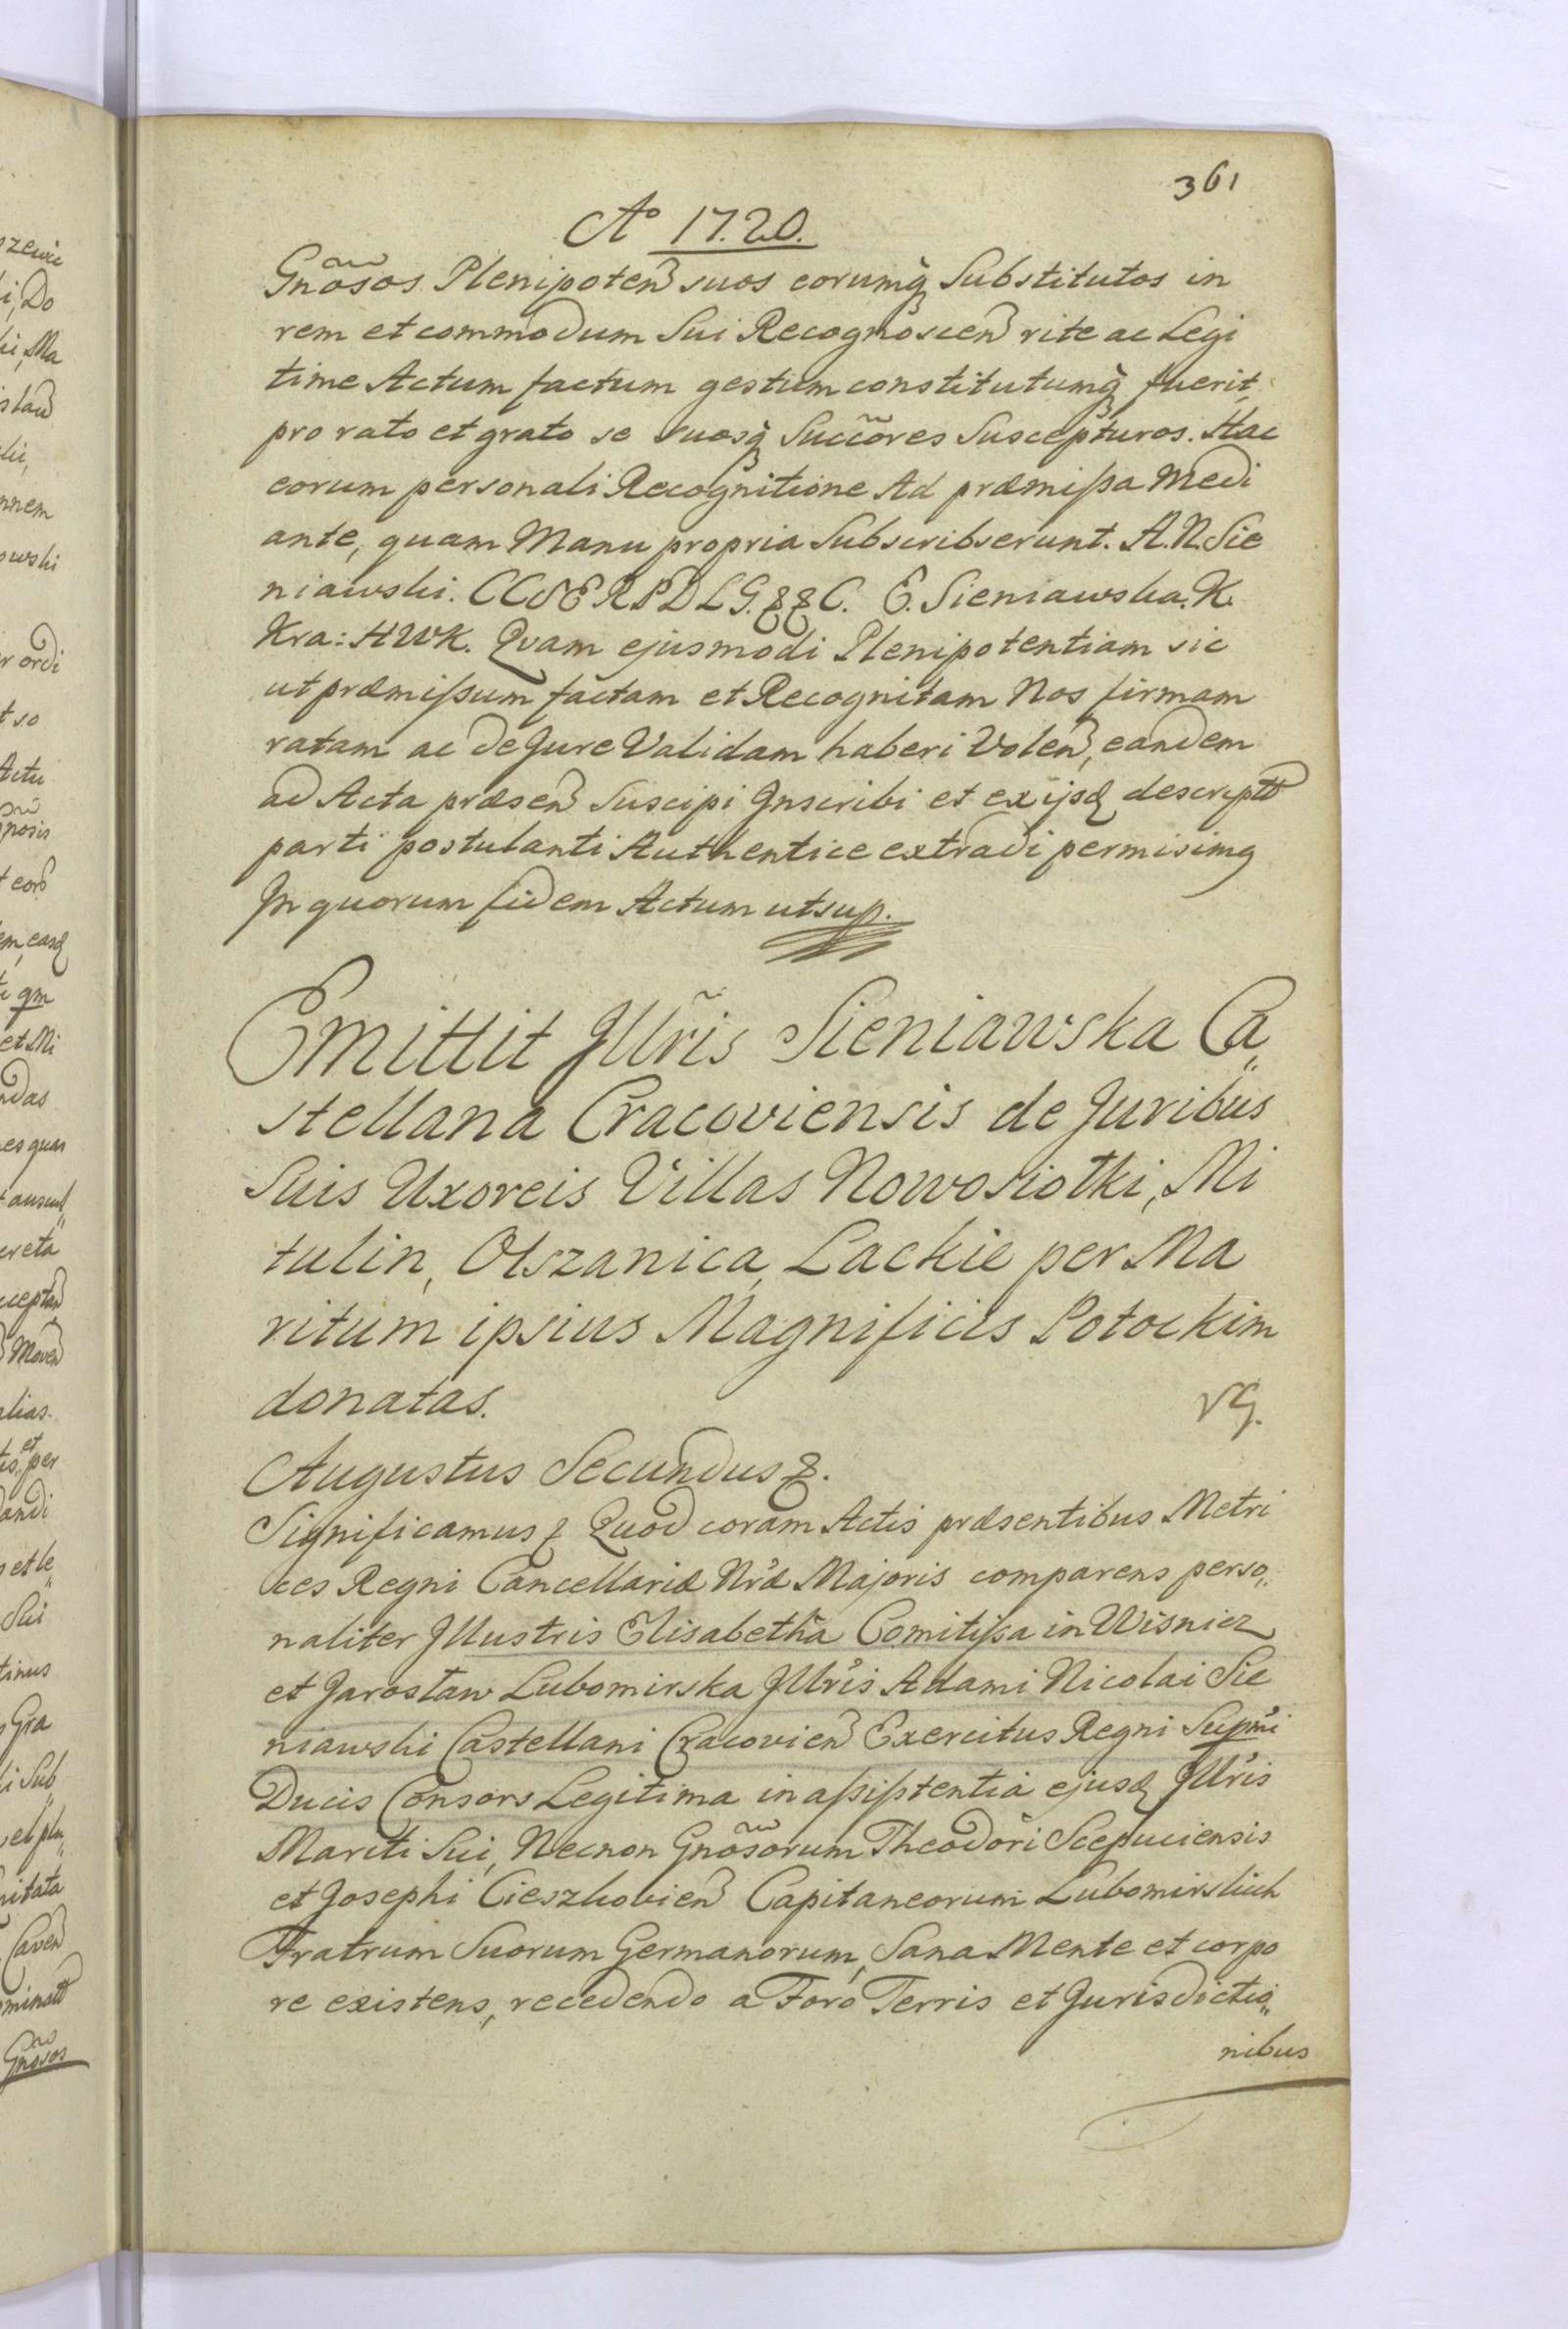 361
Ao 17.20.
Gnõsos Plenipoten̄ suos eorumq̀ Substitutos in
rem et commodum Sui Recognoscen̄ rite ac Legi
time Actum factum gestum constitutumq̀ fuerit,
pro rato et grato se suosq̀ Succõres Suscepturos. Hac
eorum personali Recognitione Ad præmißa Medi
ante, quam Manu propria Subscribserunt. A.N. Sie
niawski. CCSERPDLG. &&C. E. Sieniawska. K.
Kra: HWK. Quam ejusmodi Plenipotentiam sic
ut præmißum factam et Recognitam Nos firmam
ratam ac de Jure Validam haberi Volen̄, eandem
ad Acta præsen̄ Suscipi Inscribi et ex ijsd descript
parti postulanti Authentice extradi permisimg
In quorum fidem Actum ut sup.
Emittit Jllr̃is Sieniawska Ca„
stellana Cracoviensis de Juribus
Suis Uxoreis Villas Nowosiołki, Mi
tulin, Olszanica, Lackie per Ma
ritum ipsius Magnificis Potockim
donatas.
VG.
Augustus Secundus &.
Significamus & Quod coram Actis præsentibus Metri
ces Regni Cancellariæ Nræ Majoris comparens perso„
naliter Jllustris Elisabetha Comitißa in Wisnicz
et Jarosław Lubomirska Jllris Adami Nicolai Sie
niawski Castellani Cracovien̄ Exercitus Regni Supmi
Ducis Consors Legitima in aßistentia ejusd Jllris
Mariti Sui, Necnon Gnõsorum Theodori Scepuciensis
et Josephi Cieszkovien̄ Capitaneorum Lubomirskich
Fratrum Suorum Germanorum, Sana Mente et corpo
re existens, recedendo a Foro Terris et Jurisdictio„
nibus